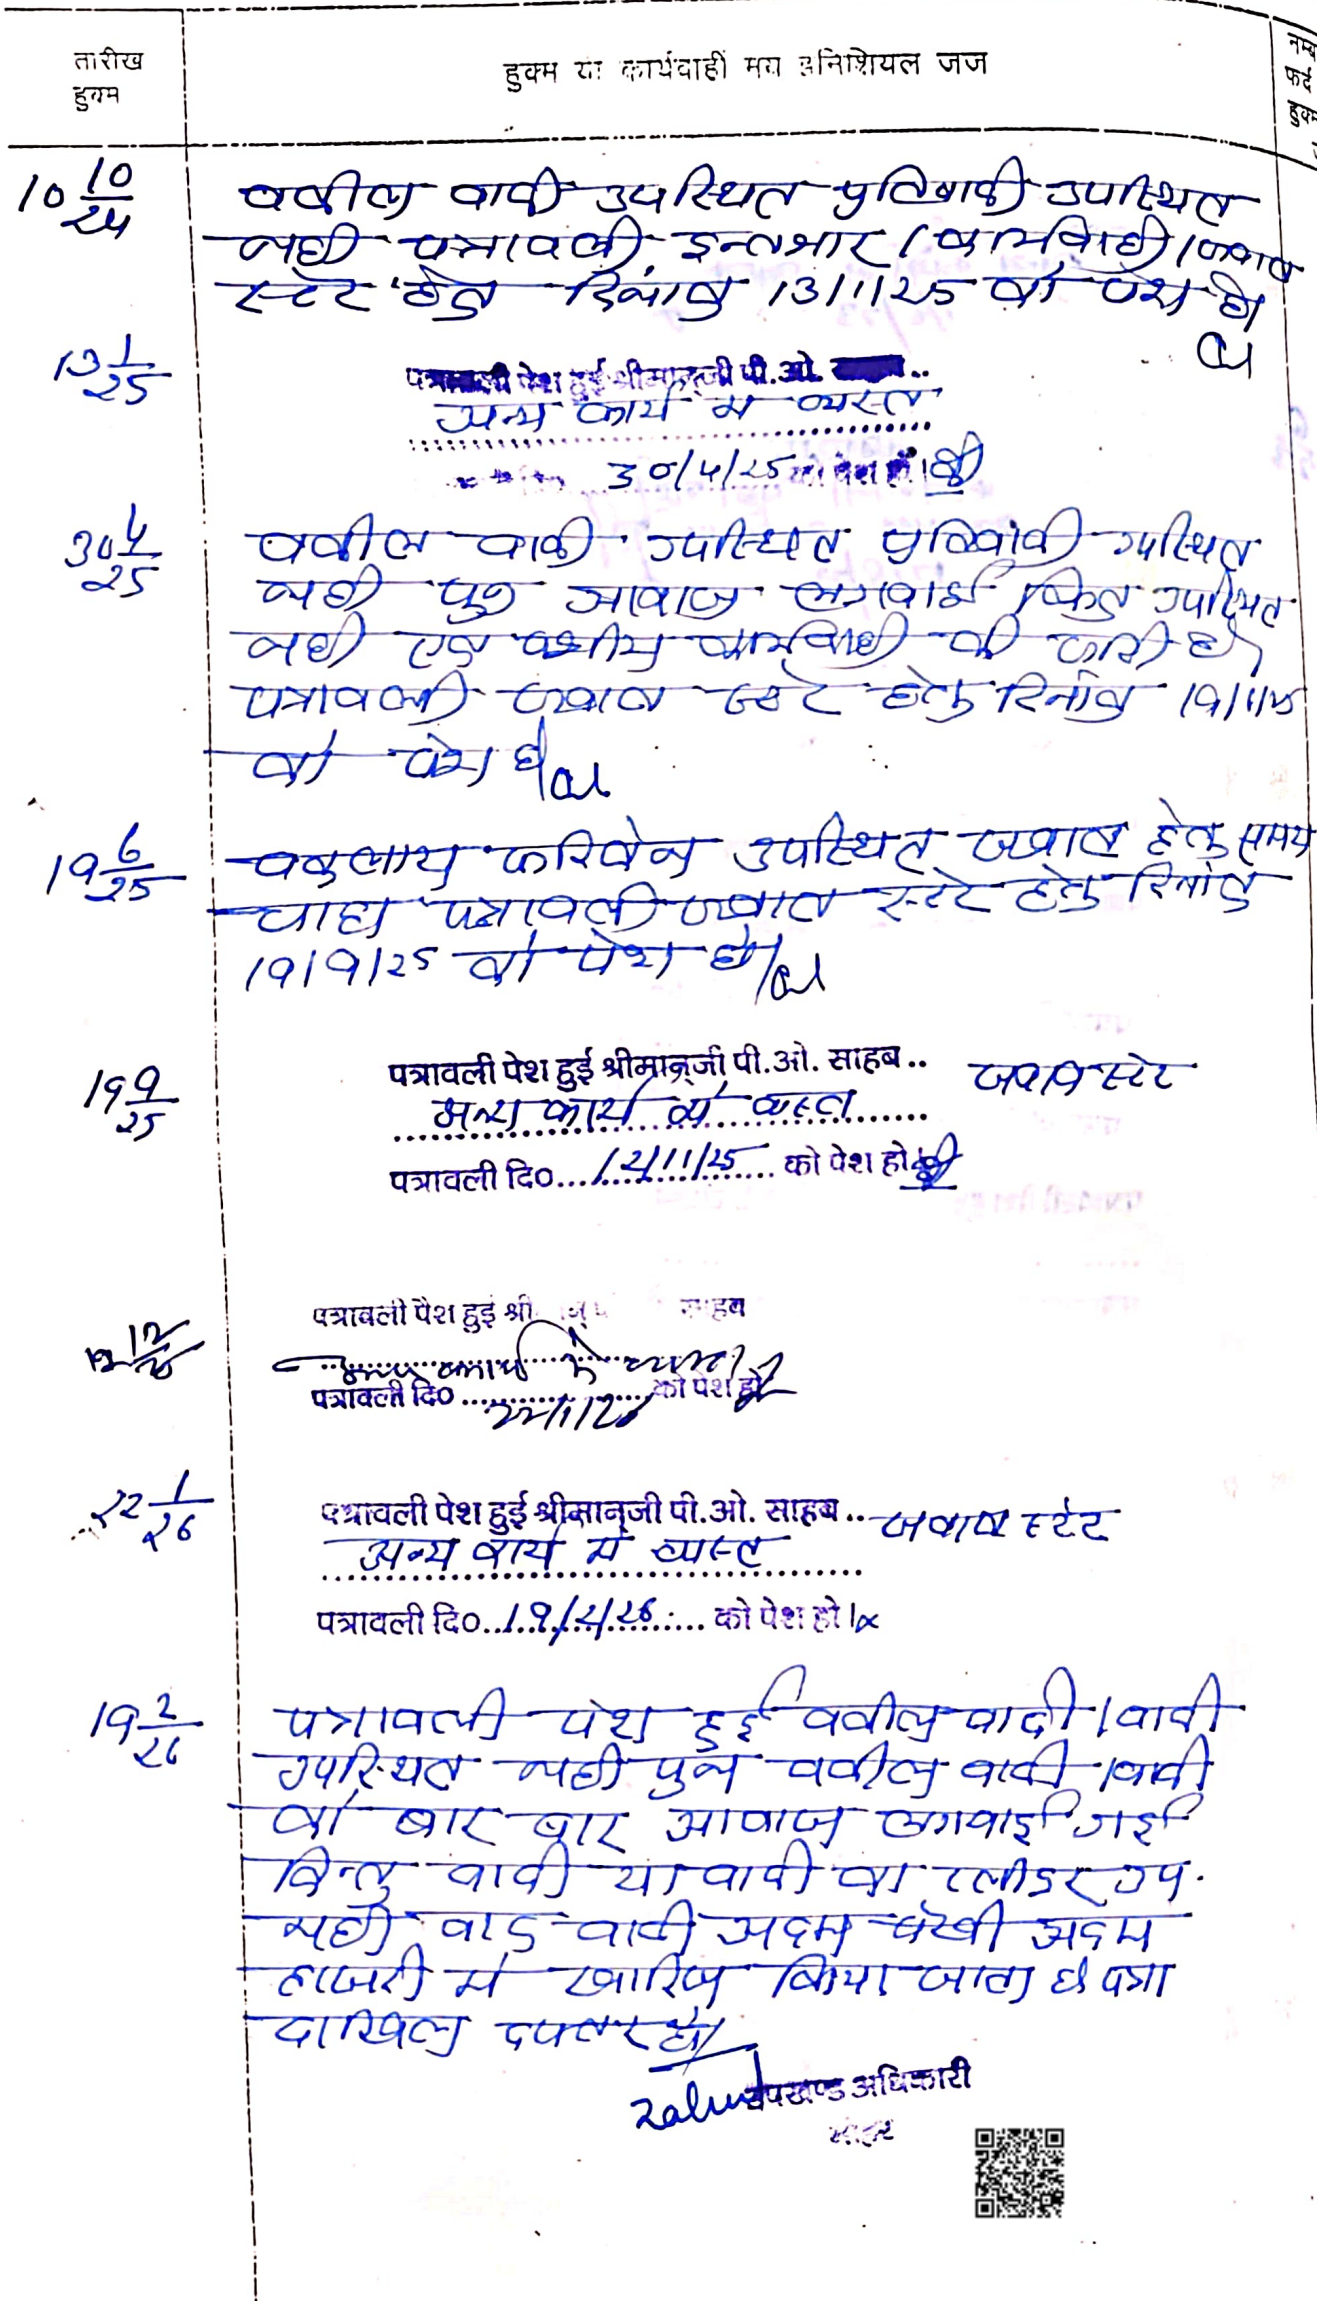 तारीख
हुक्म
हुक्म या कार्यवाही मय इनिशियल जज
नम्ब
फर्द
हुक्म
10 10/24
वकील वादी उपस्थित प्रतिवादी उपस्थित
नही पत्रावली इन्तजार / कार्यवाही / जवाब
स्टेट हेतु दिनांक 13/1/25 को पेश हो
13 1/25
पत्रावली पेश हुई श्रीमान्‌जी पी.ओ.
अन्य कार्य में व्यस्त
30/4/25 को पेश हो।
30 4/25
वकील वादी उपस्थित प्रतिवादी उपस्थित
नही पुन आवाज लगवाई किन्तु उपस्थित
नही एक पक्षीय कार्यवाही की जाती है
पत्रावली जवाब स्टे हेतु दिनांक
को पेश हो
19 6/25
वकुलाय फरिकेन उपस्थित जवाब हेतु समय
चाहा पत्रावली जवाब स्टे हेतु दिनांक
19/9/25 को पेश हो
19 9/25
पत्रावली पेश हुई श्रीमान्‌जी पी.ओ. साहब.. जवाब स्टेट
अन्य कार्य में व्यस्त
पत्रावली दि० 12/11/25 को पेश हो।
पत्रावली पेश हुई श्री साहब
अन्य कार्य में व्यस्त
पत्रावली दि० 22/1/26 को पेश हो
22 1/26
पत्रावली पेश हुई श्रीमान्‌जी पी.ओ. साहब.. जवाब स्टेट
अन्य कार्य में व्यस्त
पत्रावली दि० 19/2/26 को पेश हो।
19 2/26
पत्रावली पेश हुई वकील वादी / वादी
उपस्थित नही पुन वकील वादी / वादी
को बार बार आवाज लगवाई गई
किन्तु वादी या वादी का प्लीडर उप.
नही वाद वादी अदम पेरवी अदम
हाजरी में खारिज किया जाता है पत्रा
दाखिल दफ्तर हो
उपखण्ड अधिकारी